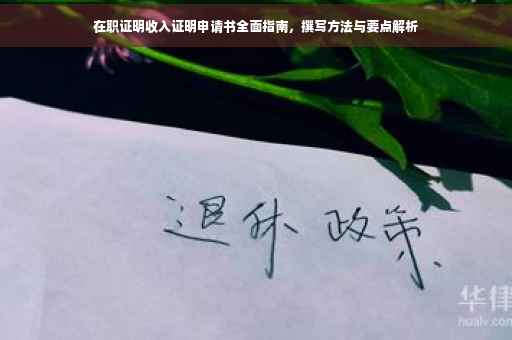 在职证明收入证明申请书全面指南，撰写方法与要点解析
退休 政策
华律
hualv.com